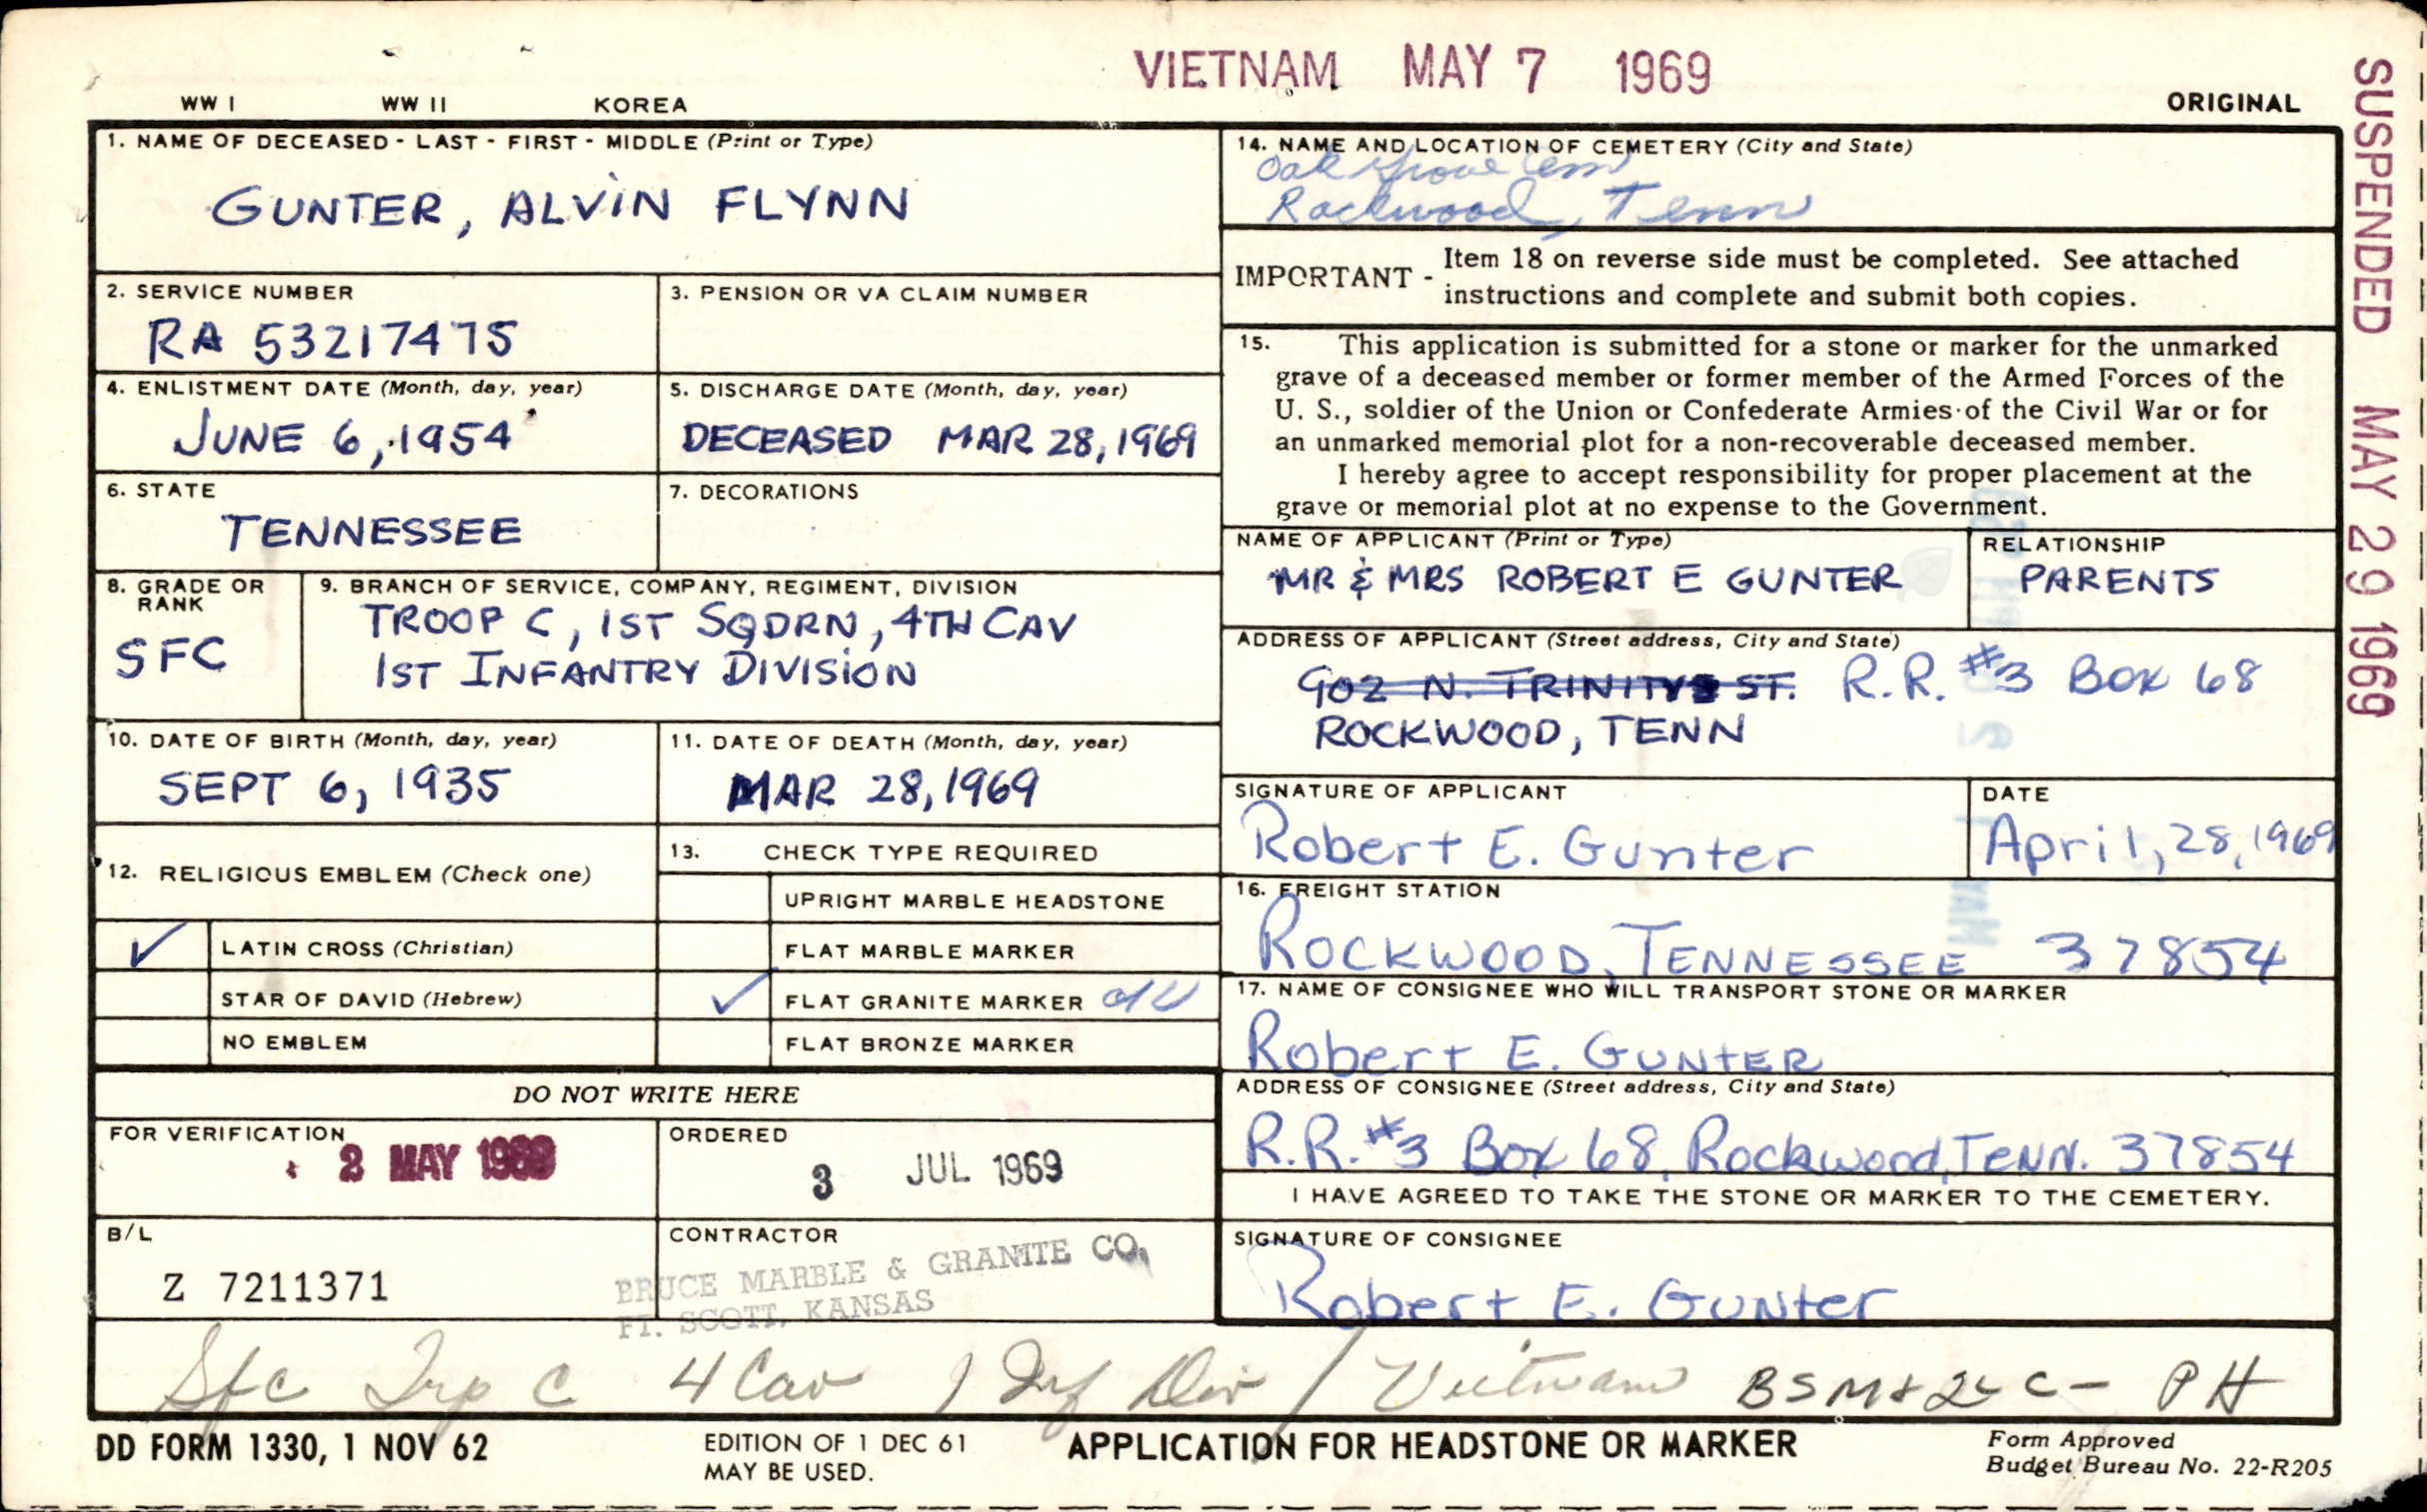 VIETNAM MAY 7 1969
WW I WW II KOREA
ORIGINAL
SUSPENDED MAY 29 1969
1. NAME OF DECEASED - LAST - FIRST - MIDDLE (Print or Type)
GUNTER, ALVIN FLYNN
2. SERVICE NUMBER
RA 53217475
3. PENSION OR VA CLAIM NUMBER
4. ENLISTMENT DATE (Month, day, year)
JUNE 6, 1954
5. DISCHARGE DATE (Month, day, year)
DECEASED MAR 28, 1969
6. STATE
TENNESSEE
7. DECORATIONS
8. GRADE OR
RANK
SFC
9. BRANCH OF SERVICE, COMPANY, REGIMENT, DIVISION
TROOP C, 1ST SQDRN, 4TH CAV
1ST INFANTRY DIVISION
10. DATE OF BIRTH (Month, day, year)
SEPT 6, 1935
11. DATE OF DEATH (Month, day, year)
MAR 28, 1969
12. RELIGIOUS EMBLEM (Check one)
✓ LATIN CROSS (Christian)
STAR OF DAVID (Hebrew)
NO EMBLEM
13. CHECK TYPE REQUIRED
UPRIGHT MARBLE HEADSTONE
FLAT MARBLE MARKER
✓ FLAT GRANITE MARKER
FLAT BRONZE MARKER
DO NOT WRITE HERE
FOR VERIFICATION
2 MAY 1969
ORDERED
3 JUL 1969
B/L
Z 7211371
CONTRACTOR
BRUCE MARBLE & GRANITE CO.
FT. SCOTT, KANSAS
14. NAME AND LOCATION OF CEMETERY (City and State)
Oak Grove Cem
Rockwood, Tenn
IMPORTANT - Item 18 on reverse side must be completed. See attached
instructions and complete and submit both copies.
15. This application is submitted for a stone or marker for the unmarked
grave of a deceased member or former member of the Armed Forces of the
U. S., soldier of the Union or Confederate Armies of the Civil War or for
an unmarked memorial plot for a non-recoverable deceased member.
I hereby agree to accept responsibility for proper placement at the
grave or memorial plot at no expense to the Government.
NAME OF APPLICANT (Print or Type)
MR & MRS ROBERT E GUNTER
RELATIONSHIP
PARENTS
ADDRESS OF APPLICANT (Street address, City and State)
902 N. TRINITY ST. R.R. #3 Box 68
ROCKWOOD, TENN
SIGNATURE OF APPLICANT
Robert E. Gunter
DATE
April, 28, 1969
16. FREIGHT STATION
ROCKWOOD, TENNESSEE 37854
17. NAME OF CONSIGNEE WHO WILL TRANSPORT STONE OR MARKER
Robert E. GUNTER
ADDRESS OF CONSIGNEE (Street address, City and State)
R.R. #3 Box 68, Rockwood, Tenn. 37854
I HAVE AGREED TO TAKE THE STONE OR MARKER TO THE CEMETERY.
SIGNATURE OF CONSIGNEE
Robert E. Gunter
Sfc Trp C 4 Cav 1 Inf Div / Vietnam BSM & PH
DD FORM 1330, 1 NOV 62
EDITION OF 1 DEC 61
MAY BE USED.
APPLICATION FOR HEADSTONE OR MARKER
Form Approved
Budget Bureau No. 22-R205